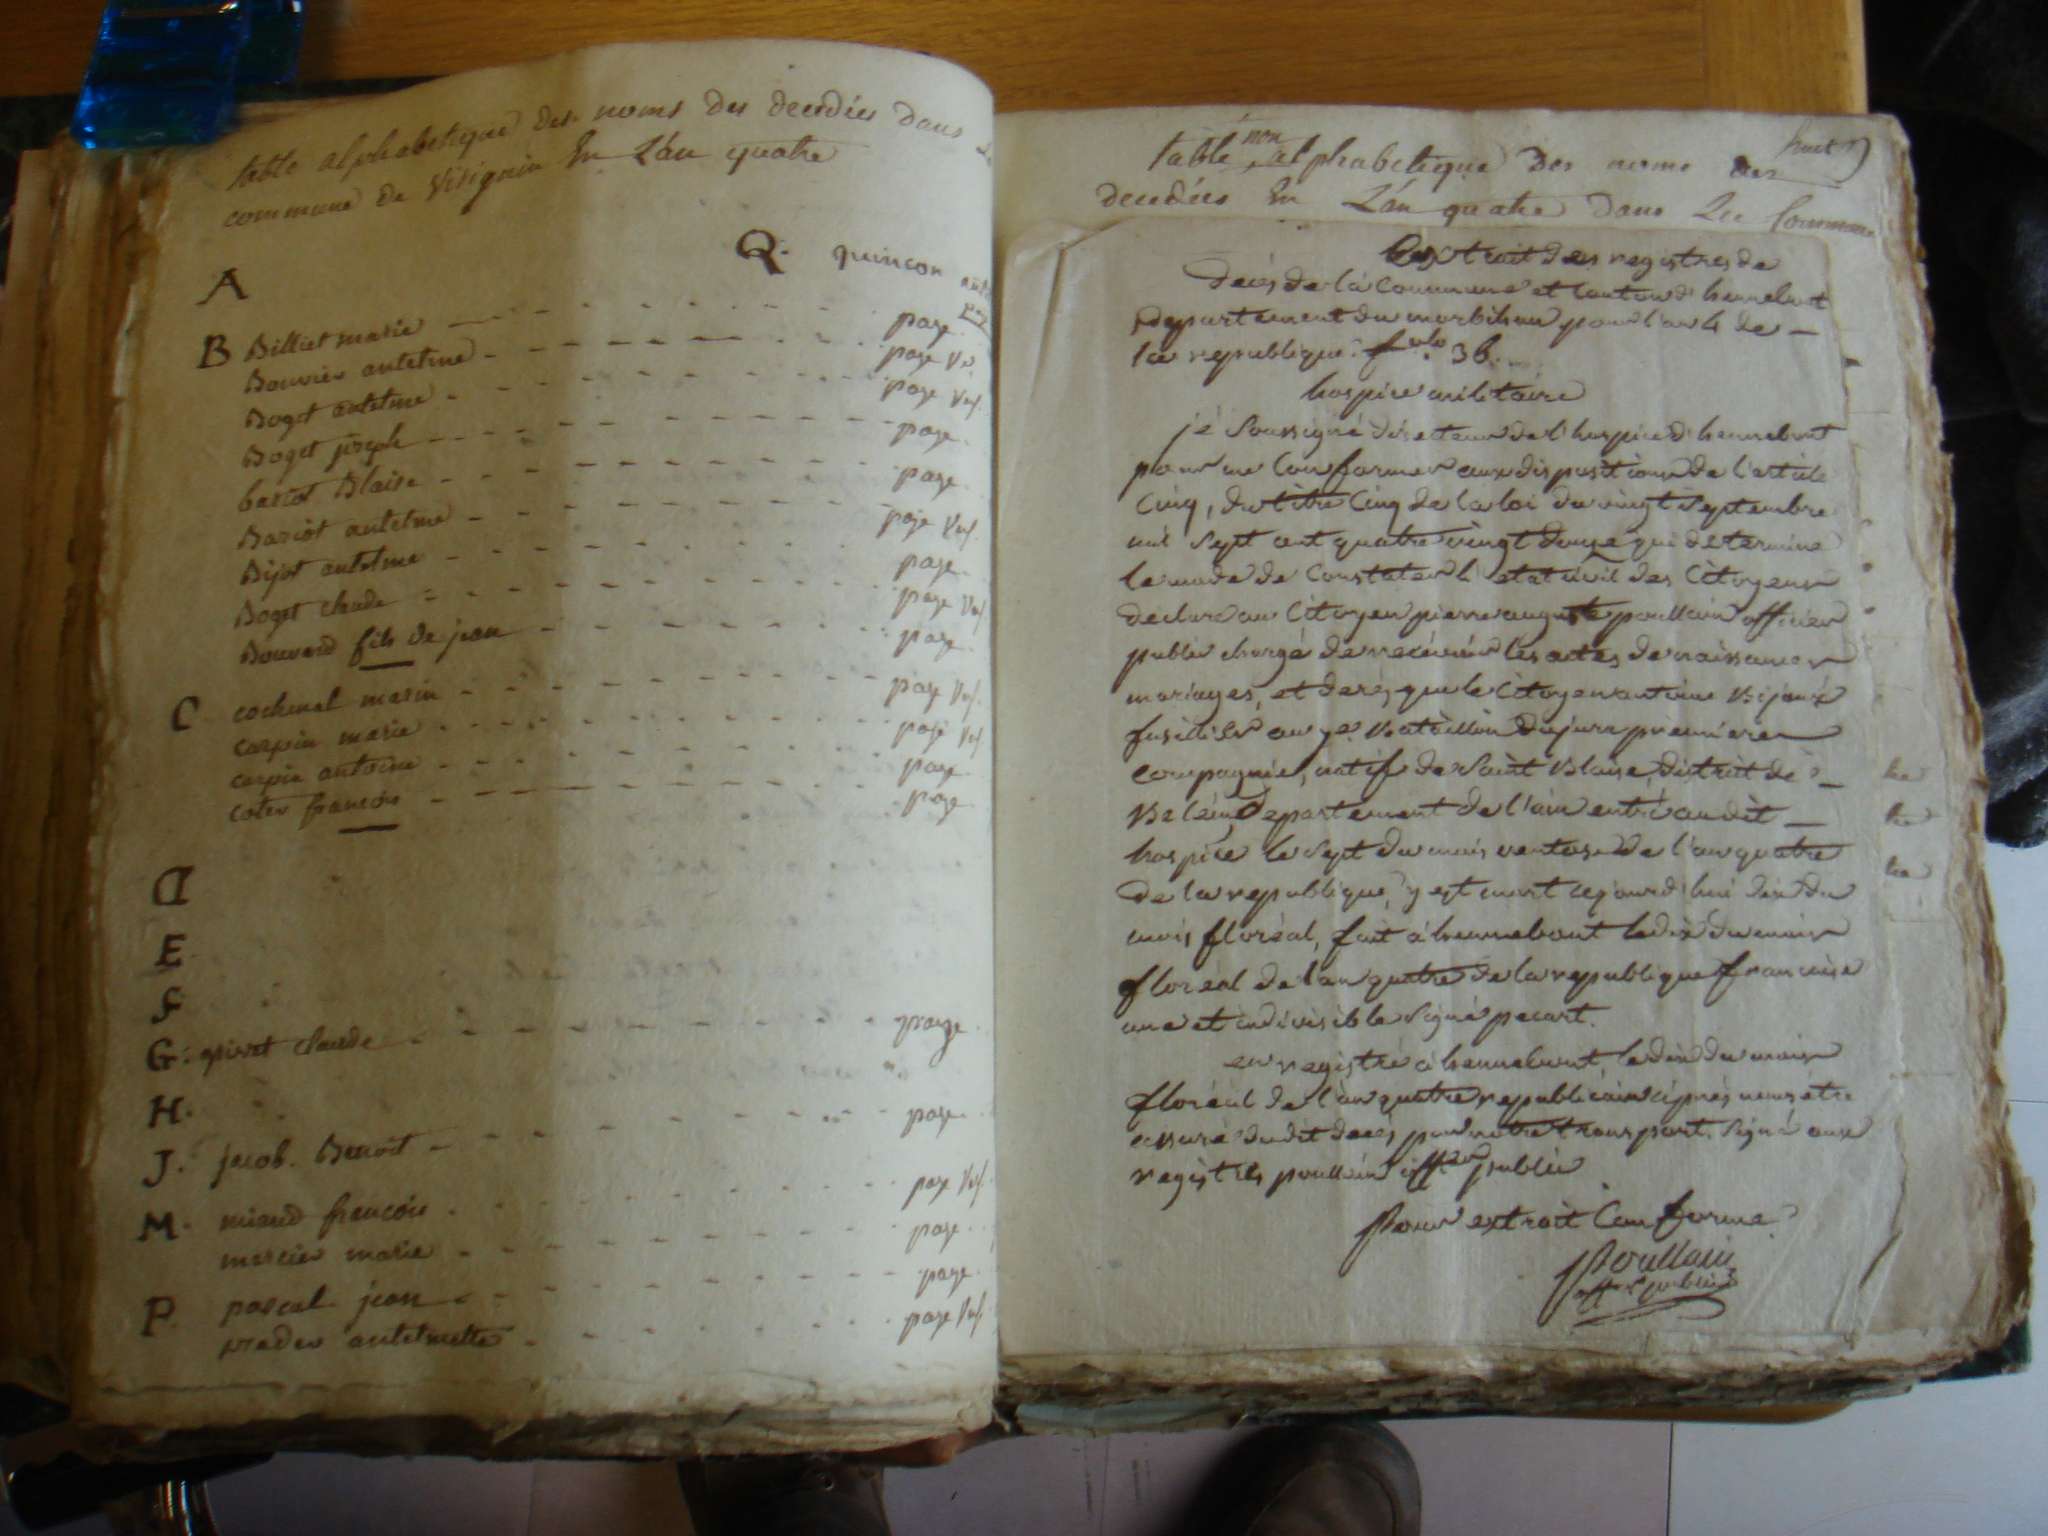 table alphabetique des noms des decedées dans
commune de Virignin En L'an quatre
Q. quinson
A
B Billiet marie page
Bouvier antelme page Vso
Boget antelme page Vso
Boget joseph page
bariot Blaise page
Bariot antelme page Vso
Bijot antelme page
Boget claude page Vso
Bouvard fils de jean page
C cochenal marin page Vso
carpin marie page Vso
carpin antoine page
coter francois page
D
E
F
G. grivet claude page
H.
J. jacob. Benoit page
M. miaud francois page Vso
mercier marie page
P pascal jean page
antelmette page Vso
table non alphabetique des noms des
decedées En L'an quatre dans La Commune
Extrait des registres de
deces de la commune et canton d'hennebont
departement du morbihan pour l'an 4 de
la republique. folo 36.
hospice militaire
je Soussigné directeur de l'hospice d'hennebont
pour me Conformer aux dispositions de l'article
Cinq, du titre Cinq de la loi du vingt Septembre
mil Sept cent quatre vingt douze qui determine
le mode de Constater l'etat civil des Citoyens
declare au Citoyen pierre auguste poullain officier
public chargé de recevoir les actes de naissances
mariages, et deces, que le Citoyen antoine Bijoux
fusilier au 7e. Bataillon du jura premiere
compagnie, natif de Saint Blaise, district de
Belein, Departement de l'ain entré audit
hospice le Sept du mois ventose de l'an quatre
de la republique, y est mort cejourd'hui dix du
mois floréal, fait à hennebont le dix du mois
floréal de l'an quatre de la republique francaise
une et indivisible Signé pecart.
enregistré à hennebont, le dix du mois
floréal de l'an quatre republicain après nous être
assuré dudit deces par notre transport. Signé aux
registres poullain offer public
Pour extrait Conforme
Poullain
offer public